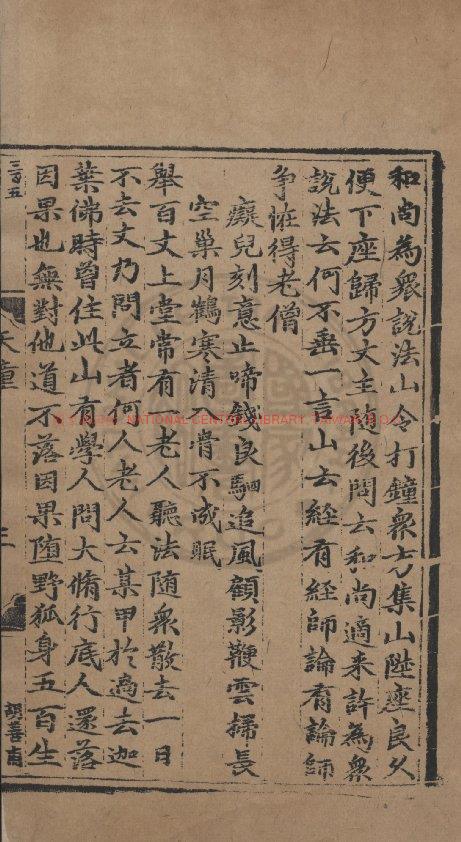 和尚為衆說法山令打鐘衆方集山陞座良久
便下座歸方丈主随後問云和尚適来許為衆
說法云何不垂一言山云経有経師論有論師
争恠得老僧
癡兒刻意止啼錢良駟追風顧影鞭雲掃長
空巢月鶴寒清入骨不成眠
舉百丈上堂常有老人聽法随衆散去一日
不去丈乃問立者何人老人云某甲於過去迦
葉佛時曾住此山有學人問大脩行底人還落
因果也無對他道不落因果堕野狐身五百生
三百五
天童
三
胡善有
NATIONAL CENTRAL LIBRARY, TAIWAN R.O.C.